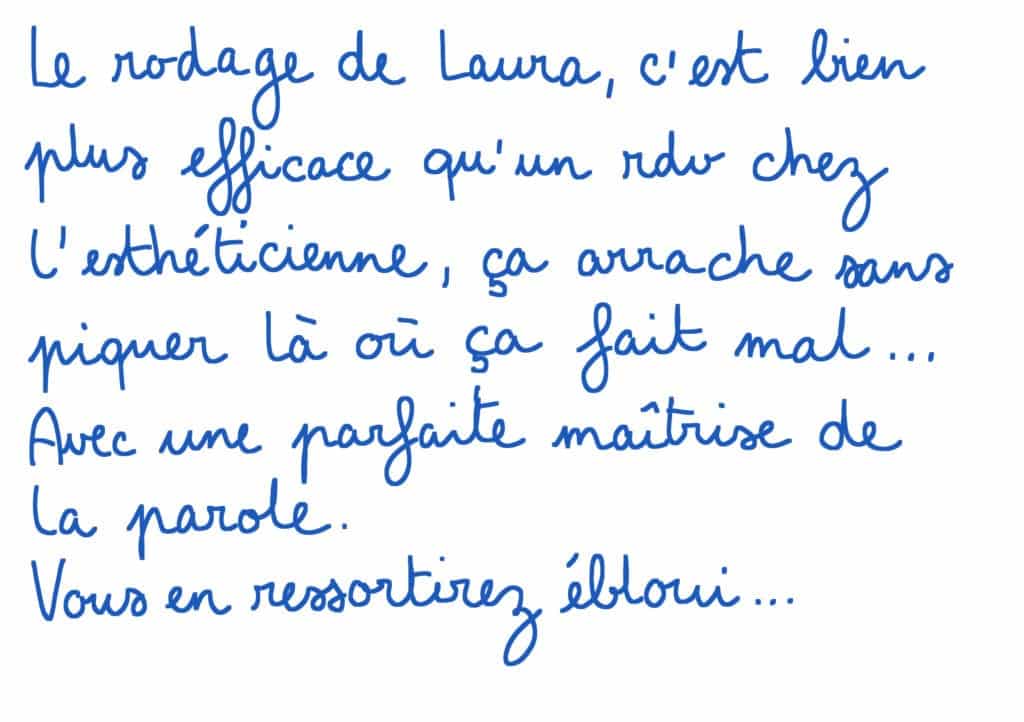 Le rodage de Laura, c'est bien
plus efficace qu'un rdv chez
l'esthéticienne, ça arrache sans
piquer là où ça fait mal...
Avec une parfaite maîtrise de
la parole.
Vous en ressortirez ébloui...